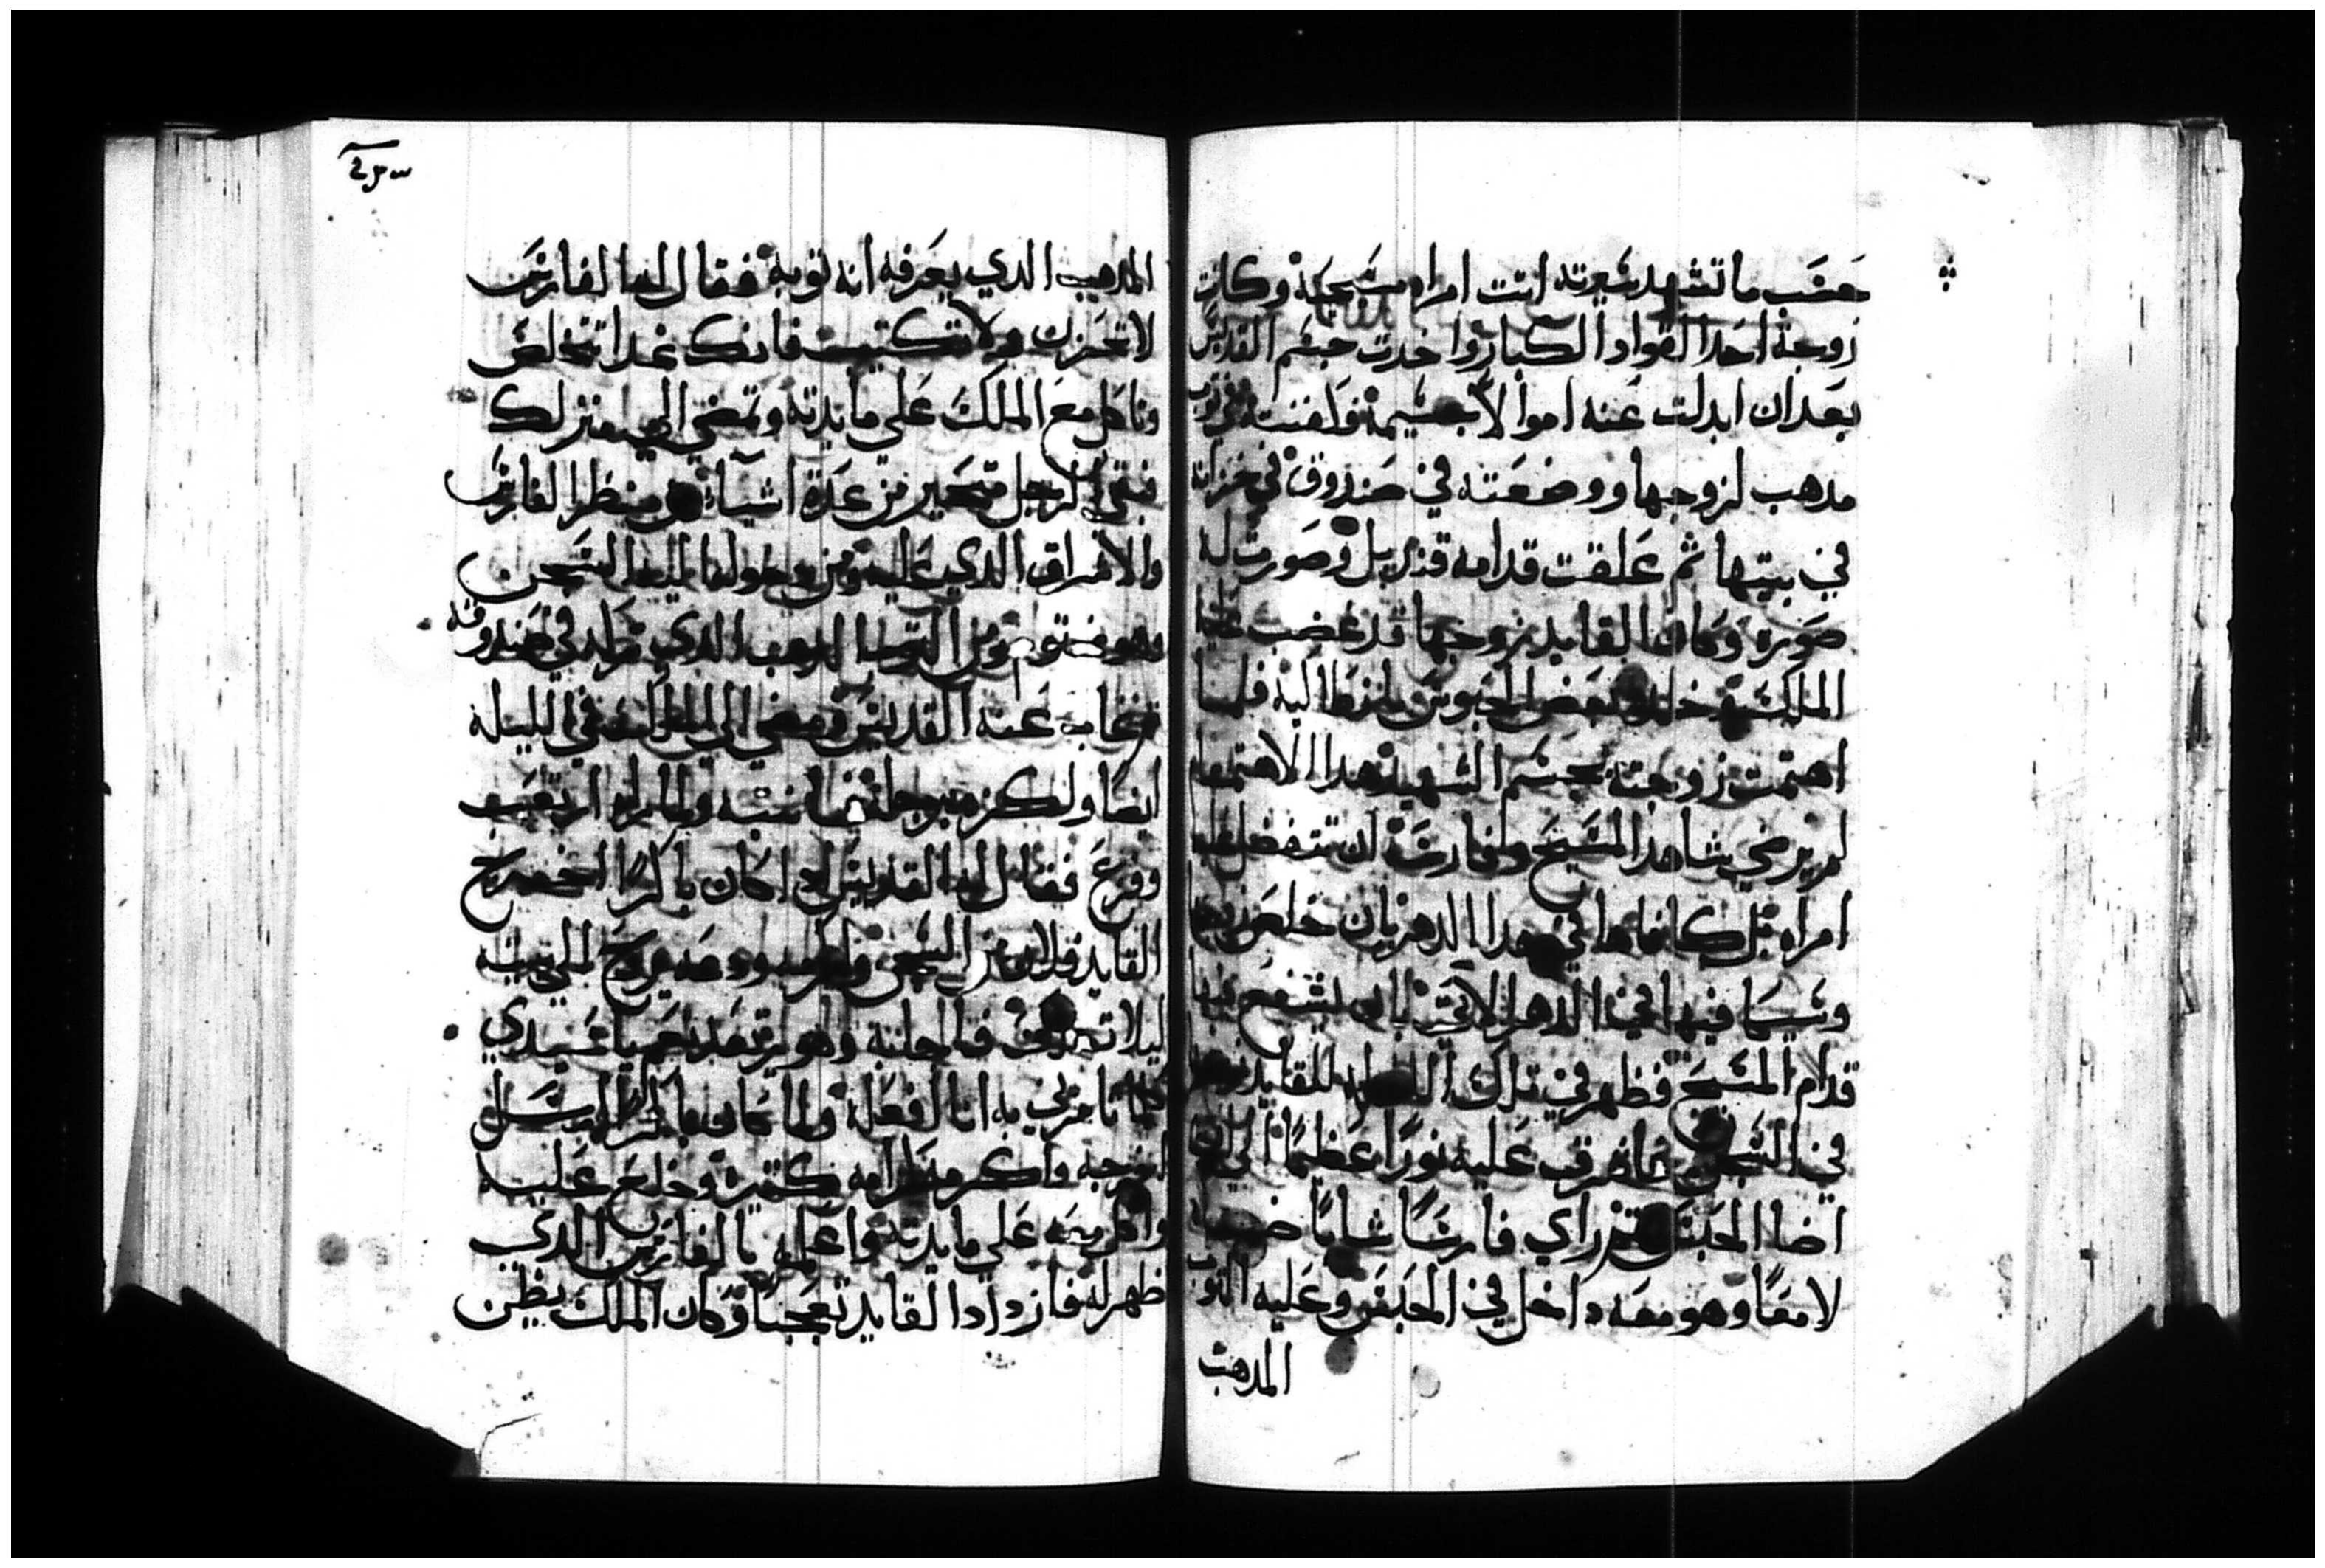 حعسب ما تشهد سيرته اتت امراه مسيحية وكانت
زوجة احد القواد الكبار واخدت جسم القديس
بعد ان ابدلت عنه اموالا جسيمة فلفنته في توب
مدهب لزوجها ووضعته في صندوق في خزانه
في بيتها ثم علقت قدامه قنديل وصورت له
صوره وكان القايد زوجها قد غضب عليه
الملك بعض الحبوس فلما
اهتمت زوجته بجسم الشهيد هدا الاهتمام
لم يرضي شاهد المسيح وفارسه ان تتفضل عليه
امراه بل كافاها في هدا الدهر بان خلص زوجها
وسيما فيها في الدهر الاتي بان يشفع فيها
قدام المسيح فظهر في تلك الليله للقايد
في السجن واشرق عليه نورا عظيما الي ان
اضا الحبس راي فارسا شابا
لامعا وهو معه داخل في الحبس وعليه التوب
المدهب
المدهب الدي يعرفه انه توبه فقال له الفارس
لا تحزن ولا تكتيب فانك غدا تخلص
وتاكل مع الملك علي مايدته وتمضي الي منزلك
فبقي الرجل متحير من عدة اشياء من منظر الفارس
والاشراق الدي عليه ومن دخوله اليه السجن
وهو ومن التوب المدهب الدي في صندوقه
فغاب عنه القديس ومضي الي الملك في الليله
ايضا ولكزه برجله فانتبه
وفزع فقال له القديس ادا كان باكرا اخرج
القايد فلان من السجن واكرمه ودعه يروح الي بيته
ليلا فاجابه وهو يرتعد نعم يا سيدي
كلما تامرني به انا افعله ولما كان باكرا ارسل
اخرجه واكرمه كرامه كتيره وخلع عليه
واكل معه علي مايدته واعلمه بالفارس الدي
ظهر له فازداد القايد تعجبا وكان الملك يظن